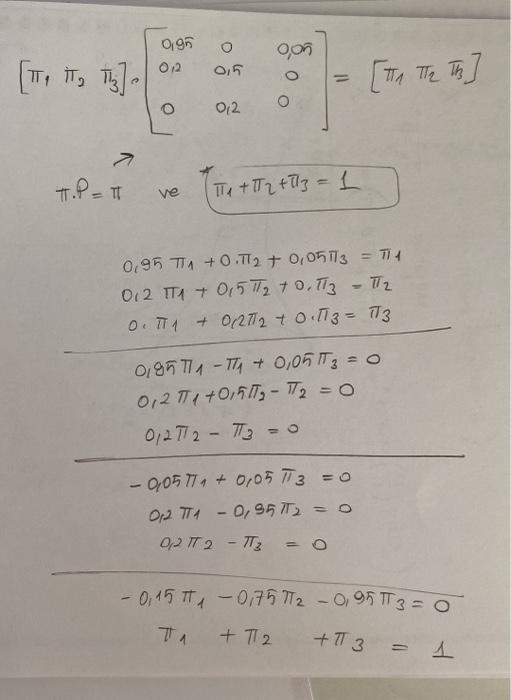 0,95 0 0,05
[π1 π2 π3] . 0,2 0,5 0 = [π1 π2 π3]
0 0,2 0
π.P = π ve *π1 + π2 + π3 = 1
0,95 π1 + 0.π2 + 0,05π3 = π1
0,2 π1 + 0,5π2 + 0.π3 = π2
0. π1 + 0,2π2 + 0.π3 = π3
0,95π1 - π1 + 0,05π3 = 0
0,2 π1 + 0,5π2 - π2 = 0
0,2π2 - π3 = 0
- 0,05π1 + 0,05 π3 = 0
0,2 π1 - 0,95π2 = 0
0,2 π2 - π3 = 0
- 0,15 π1 - 0,75 π2 - 0,95 π3 = 0
π1 + π2 + π3 = 1